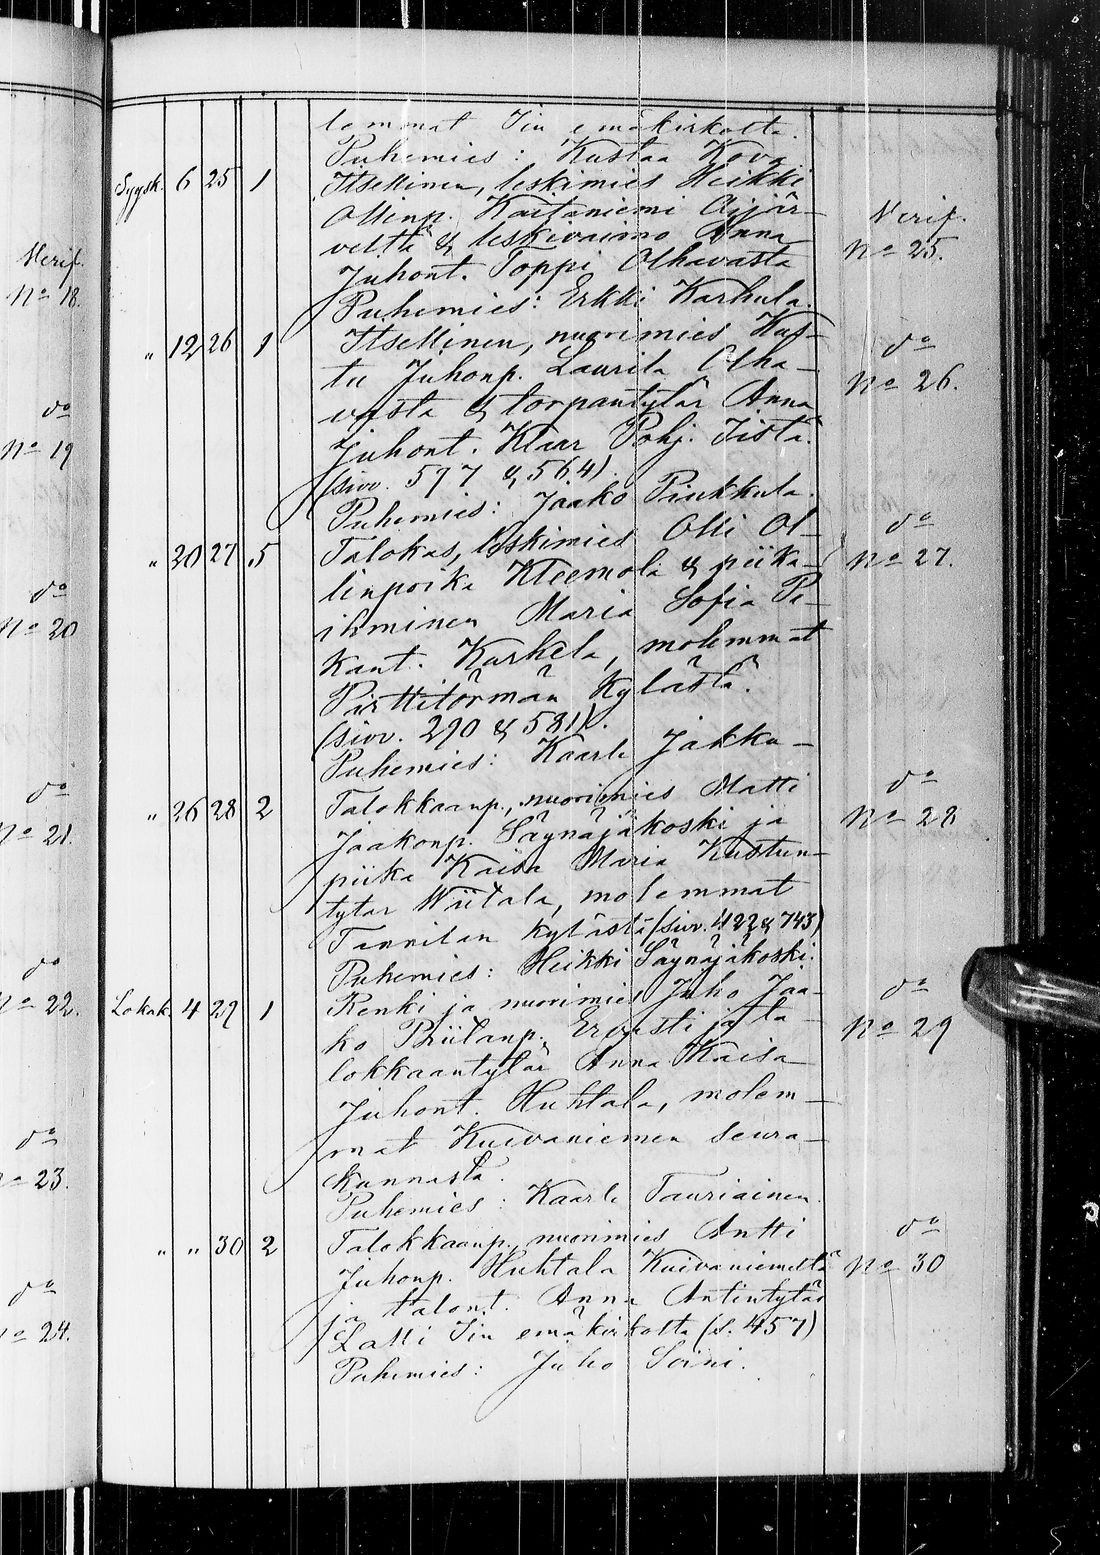 Verif.
No 18.
do
No 19
do
No 20
do
No 21.
do
No 22.
do
No 23.
do
No 24.
lemmat Iin emäkirkolta.
Puhemies: Kustaa Kova
Syysk. 6 25 1 Itsellinen, leskimies Heikki
Ollinp. Kaitaniemi Aijär-
veltä & leskivaimo Anna
Juhont. Toppi Olhavasta
Puhemies: Erkki Karhula.
Verif.
No 25.
" 12 26 1 Itsellinen, nuorimies Kus-
tu Juhonp. Laurila Olha-
vasta & torpantytär Anna
Juhont. Klaar Pohj. Iistä.
(sivv. 597 & 564).
Puhemies: Jaako Piukkula.
do
No 26.
" 20 27 5 Talokas, leskimies Olli Ol-
linpoika Kleemola & piika-
ihminen Maria Sofia Pe-
kant. Karhela, molemmat
Pirttitörmän kylästä.
(sivv. 290 & 581).
Puhemies: Kaarle Jakku-
do
No 27.
" 26 28 2 Talokkaanp., nuorimies Matti
Jaakonp. Säynäjäkoski ja
piika Kaisa Maria Kustun-
tytär Wiitala, molemmat
Tannilan kylästä (sivv. 422 & 743)
Puhemies: Heikki Säynäjäkoski.
do
No 28
Lokak. 4 29 1 Renki ja nuorimies Juho Jaa-
ko Priitanp. Ervasti ja ta-
lokkaantytär Anna Kaisa
Juhont. Huhtala, molem-
mat Kuivaniemen seura-
kunnasta.
Puhemies: Kaarle Tauriainen.
do
No 29
" " 30 2 Talokkaanp., nuorimies Antti
Juhonp. Huhtala Kuivaniemeltä
ja talont. Anna Antintytär
Lalli Iin emäkirkolta (s. 457)
Puhemies: Juho Soini.
do
No 30